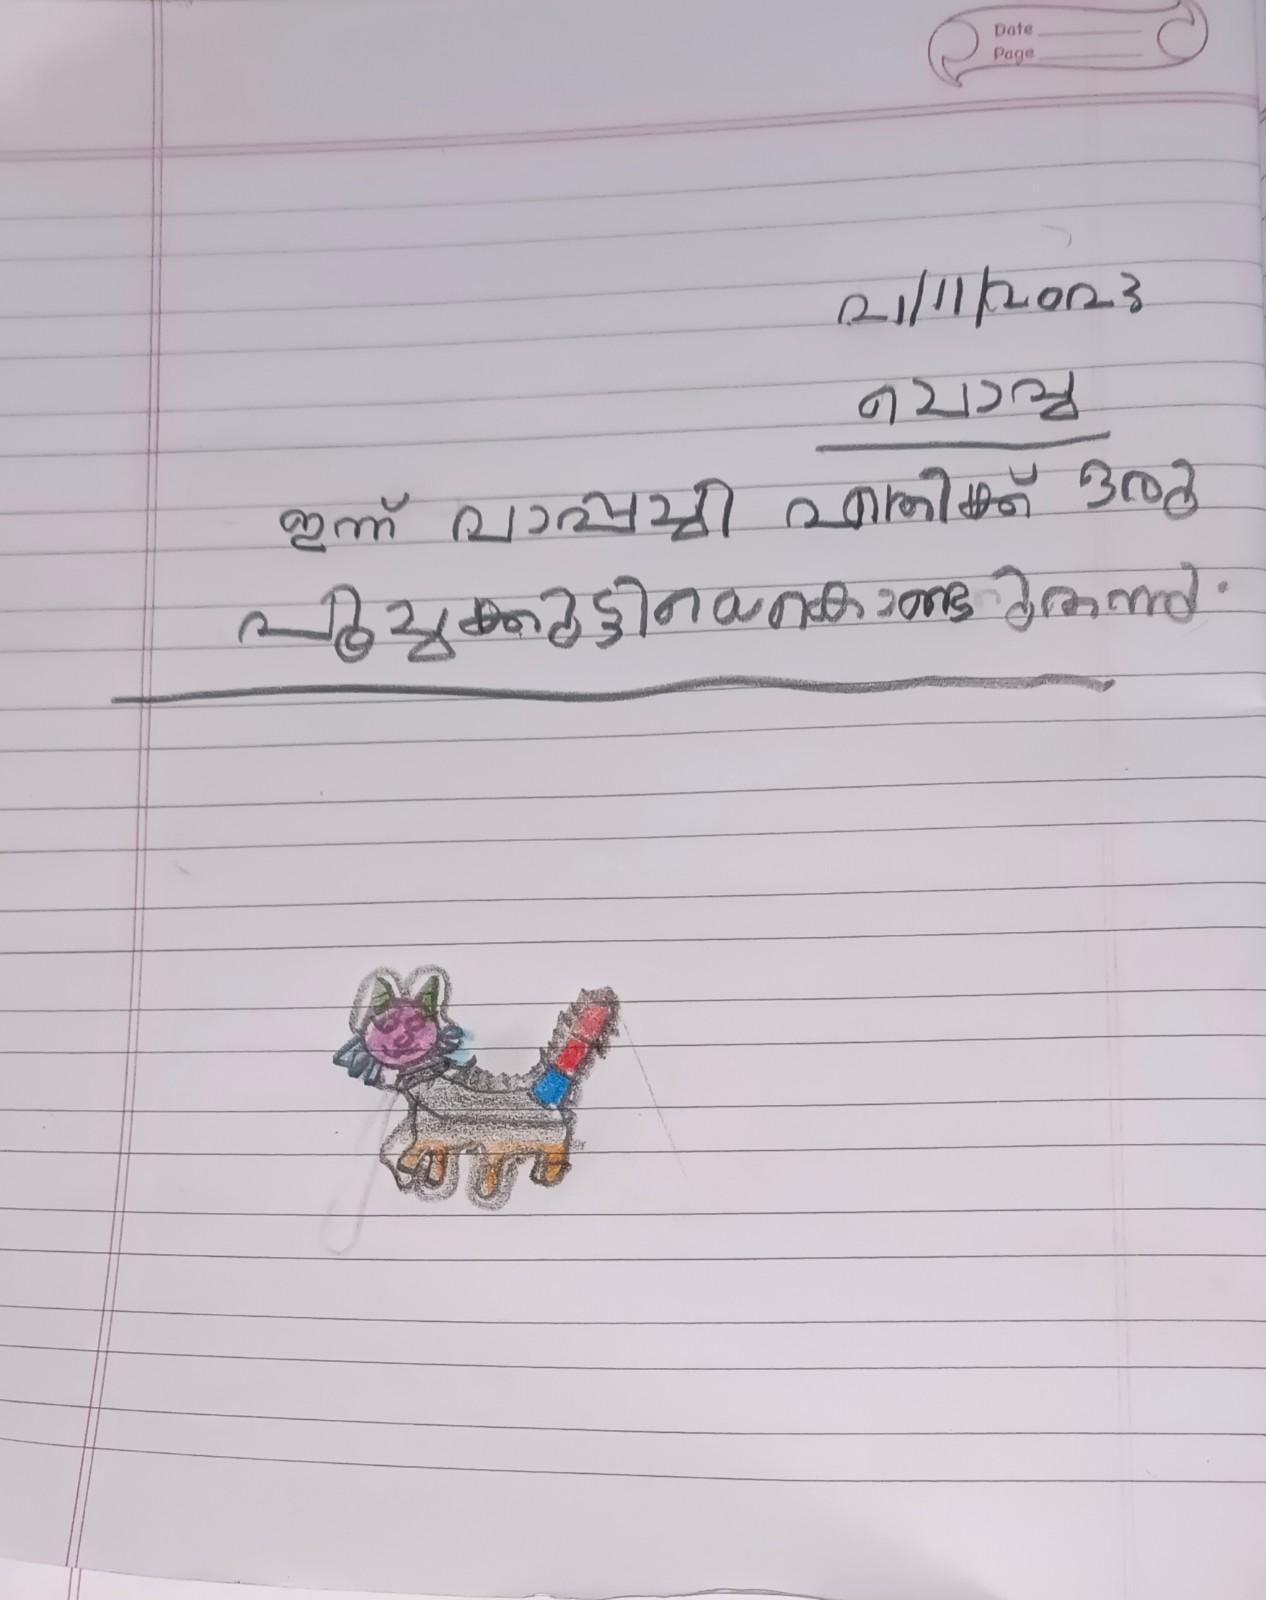 Date
Page
21/11/2023
ചൊവ്വ
ഇന്ന് വാപ്പച്ചി എനിക്ക് ഒരു
പൂച്ചക്കുട്ടിനെ കൊണ്ടുതന്നു.